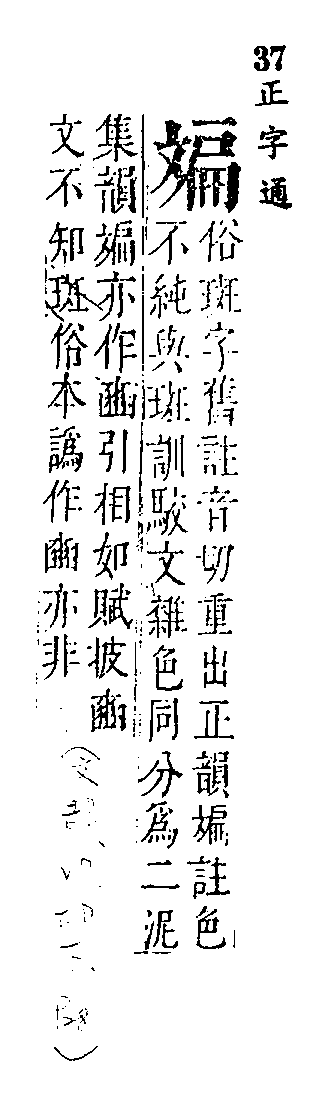 37
正字通
斒
俗斑字舊註音切重出正韻斒註色
不純與斑訓駮文雜色同分爲二泥
集韻斒亦作豳引相如賦披豳
文不知斑俗本譌作豳亦非